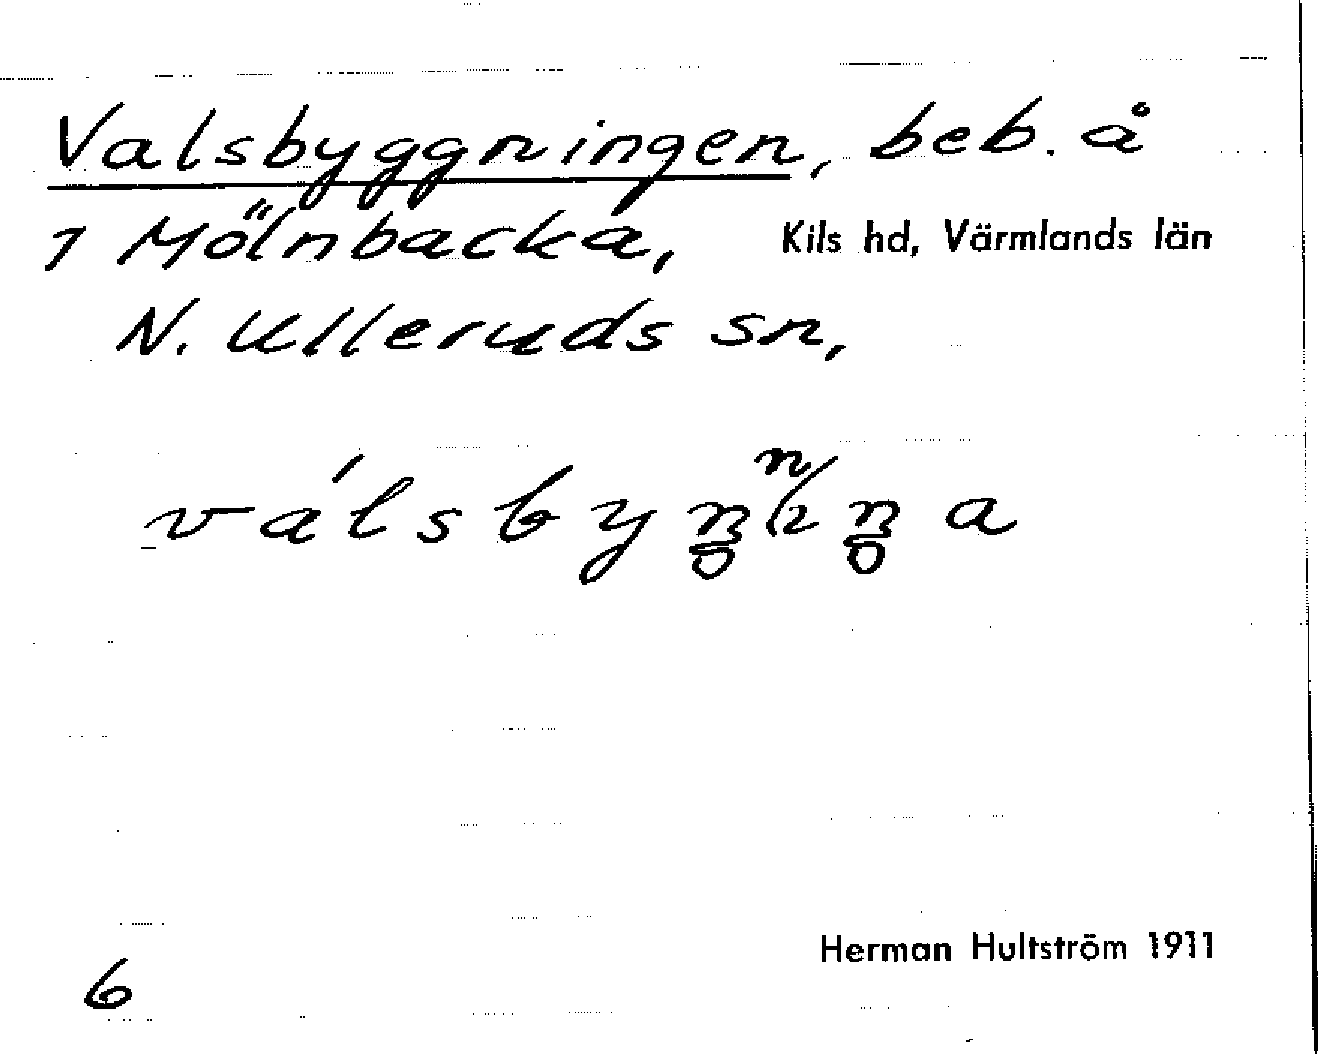 Valsbyggningen, beb. å
1 Mölnbacka, Kils hd, Värmlands län
N. Ulleruds sn,
Herman Hultström 1911
6